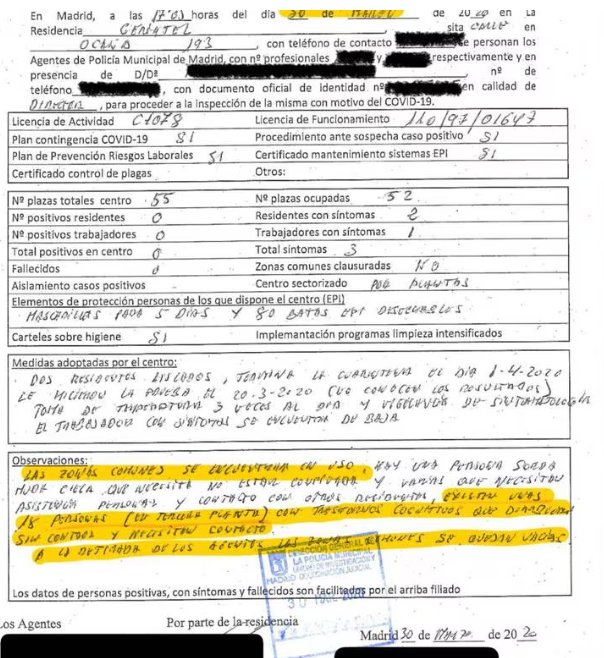 En Madrid, a las 17:03 horas del día 30 de Marzo de 2020 en La
Residencia GENATEL, sita CALLE en
OCAÑA 193, con teléfono de contacto se personan los
Agentes de Policía Municipal de Madrid, con nº profesionales y respectivamente y en
presencia de D/Dª nº de
teléfono, con documento oficial de identidad nº en calidad de
DIRECTOR, para proceder a la inspección de la misma con motivo del COVID-19.
Licencia de Actividad C1078 Licencia de Funcionamiento 110/97/01647
Plan contingencia COVID-19 SI Procedimiento ante sospecha caso positivo SI
Plan de Prevención Riesgos Laborales SI Certificado mantenimiento sistemas EPI SI
Certificado control de plagas Otros:
Nº plazas totales centro 55 Nº plazas ocupadas 52
Nº positivos residentes 0 Residentes con síntomas 2
Nº positivos trabajadores 0 Trabajadores con síntomas 1
Total positivos en centro 0 Total sintomas 3
Fallecidos 0 Zonas comunes clausuradas NO
Aislamiento casos positivos Centro sectorizado POR PLANTAS
Elementos de protección personas de los que dispone el centro (EPI)
MASCARILLAS PARA 5 DIAS Y 80 BATAS EPI DESECHABLES
Carteles sobre higiene SI Implementación programas limpieza intensificados
Medidas adoptadas por el centro:
DOS RESIDENTES AISLADOS, TERMINA LA CUARENTENA EL DIA 1-4-2020
LE HICIERON LA PRUEBA EL 20-3-2020 (NO CONOCEN LOS RESULTADOS)
TOMA DE TEMPERATURA 3 VECES AL DIA Y VIGILANCIA DE SINTOMATOLOGIA
EL TRABAJADOR CON SINTOMAS SE ENCUENTRA DE BAJA
Observaciones:
LAS ZONAS COMUNES SE ENCUENTRAN EN USO, HAY UNA PERSONA SORDA
MUDA CIEGA QUE NECESITA NO ESTAR CONFINADA Y VARIAS QUE NECESITAN
ASISTENCIA PERSONAL Y CONTACTO CON OTROS RESIDENTES, EXISTEN UNAS
18 PERSONAS (EN TERCERA PLANTA) CON TRASTORNOS COGNITIVOS QUE DEAMBULAN
SIN CONTROL Y NECESITAN CONTACTO
A LA RETIRADA DE LOS AGENTES LAS ZONAS COMUNES SE QUEDAN VACIAS
DIRECCIÓN GENERAL DE
LA POLICIA MUNICIPAL
MADRID
30 MAR 2020
Los datos de personas positivas, con síntomas y fallecidos son facilitados por el arriba filiado
Los Agentes Por parte de la residencia
Madrid 30 de Marzo de 2020